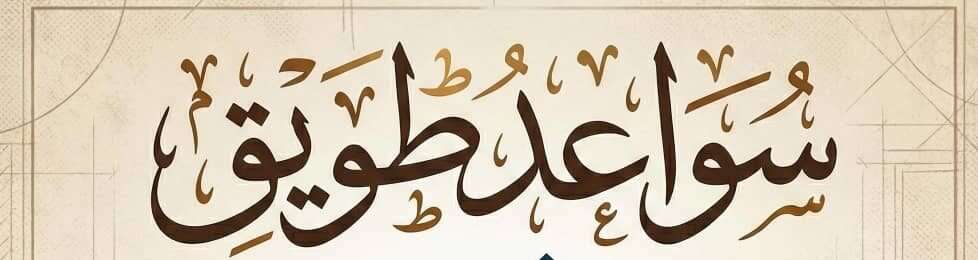 سُوَاعدُ طَويَقِ